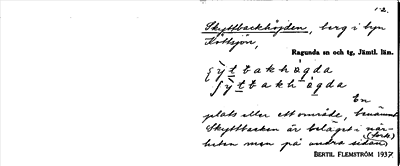 1-2.
Skyttbackhöjden, berg i byn
Köttsjön,
Ragunda sn och tg, Jämtl. län.
En
plats eller ett område, benämnt
Skyttbacken är beläget i när-
heten men på andra sidan
BERTIL FLEMSTRÖM 1937.